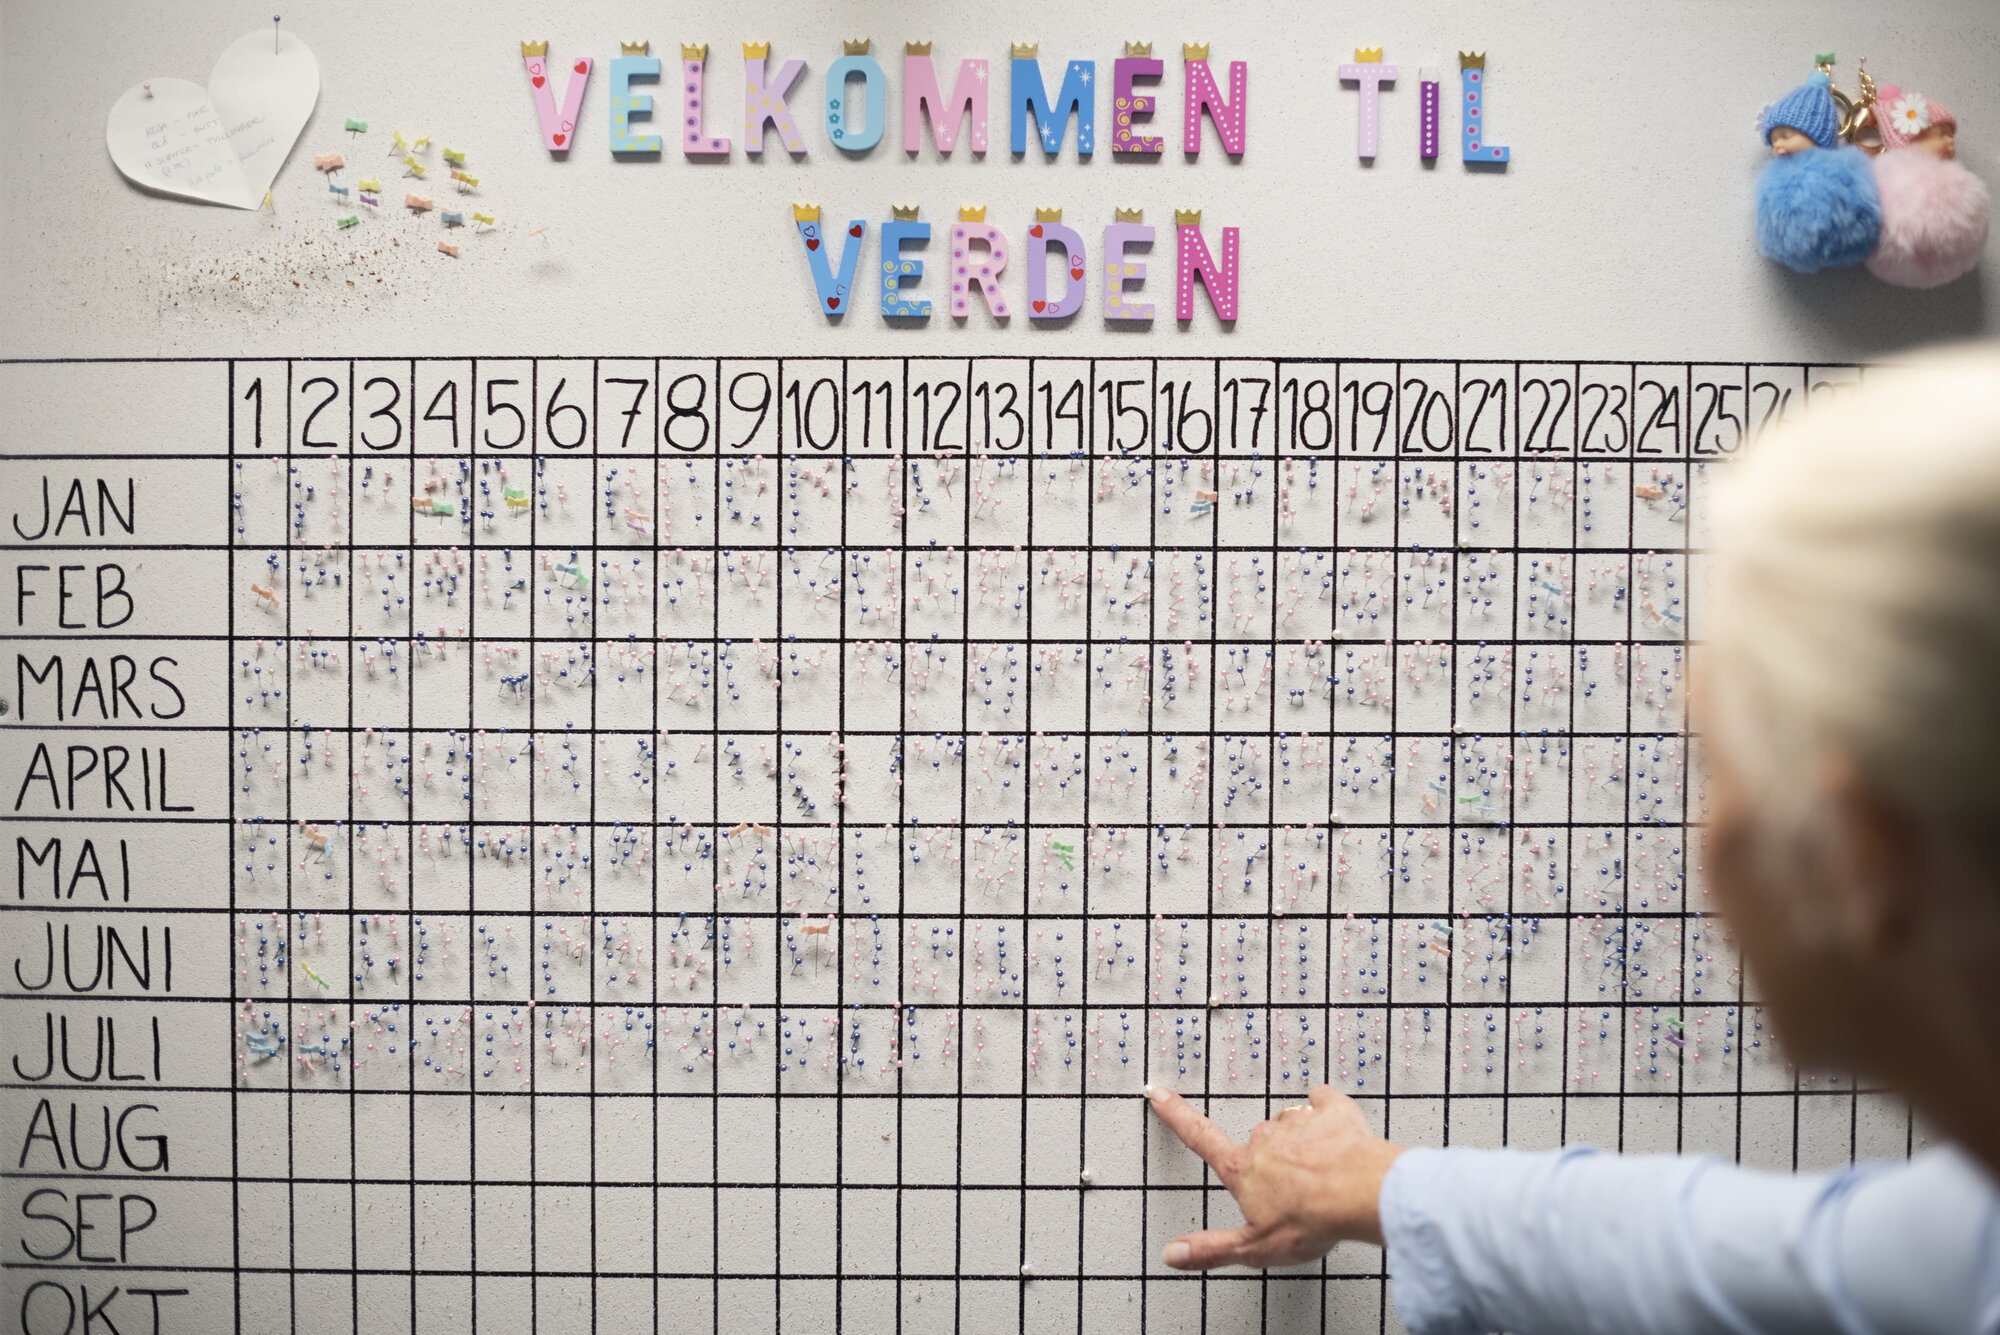 ROSA - PIKE
BLÅ - GUTT
VELKOMMEN TIL
VERDEN
1 2 3 4 5 6 7 8 9 10 11 12 13 14 15 16 17 18 19 20 21 22 23 24 25 26
JAN
FEB
MARS
APRIL
MAI
JUNI
JULI
AUG
SEP
OKT